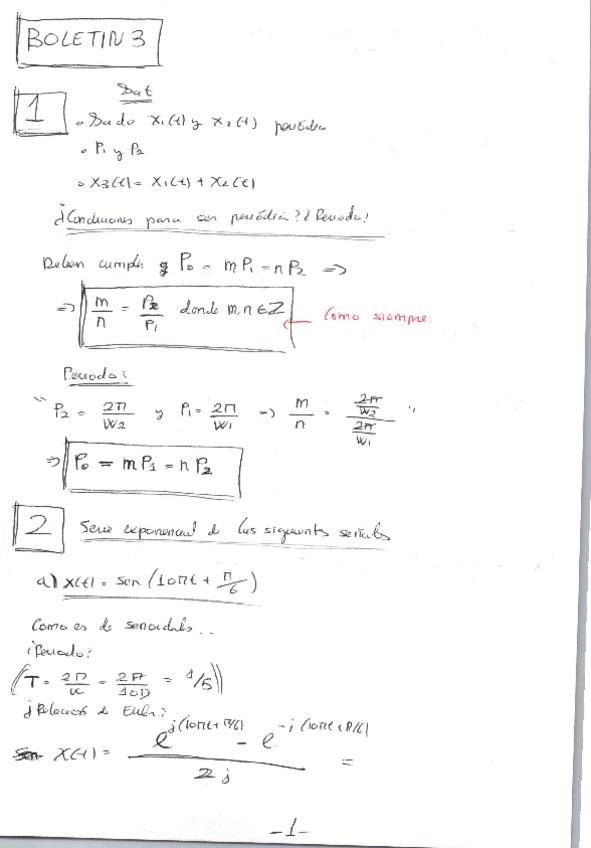 BOLETIN 3
1 Dat
• Dado X₁(t) y X₂(t) periódica
• P₁ y P₂
• X₃(t) = X₁(t) + X₂(t)
¿Condiciones para ser periódica? ¿Periodo?
Deben cumplir q P₀ = mP₁ = nP₂ ⇒
⇒ m/n = P₂/P₁ donde m, n ∈ Z ← Como siempre.
Periodo:
" P₂ = 2π/W₂ y P₁ = 2π/W₁ → m/n = (2π/W₂)/(2π/W₁) "
⇒ P₀ = mP₁ = nP₂
2 Serie exponencial de las siguientes señales
a) X(t) = sen (10πt + π/6)
Como es de senoidales..
¿Periodo?
(T = 2π/ = 2π/10π = 1/5)
¿Relaciones de Euler?
X(t) = (e^{j(10πt+π/6)} - e^{-j(10πt+π/6)})/2j =
-1-